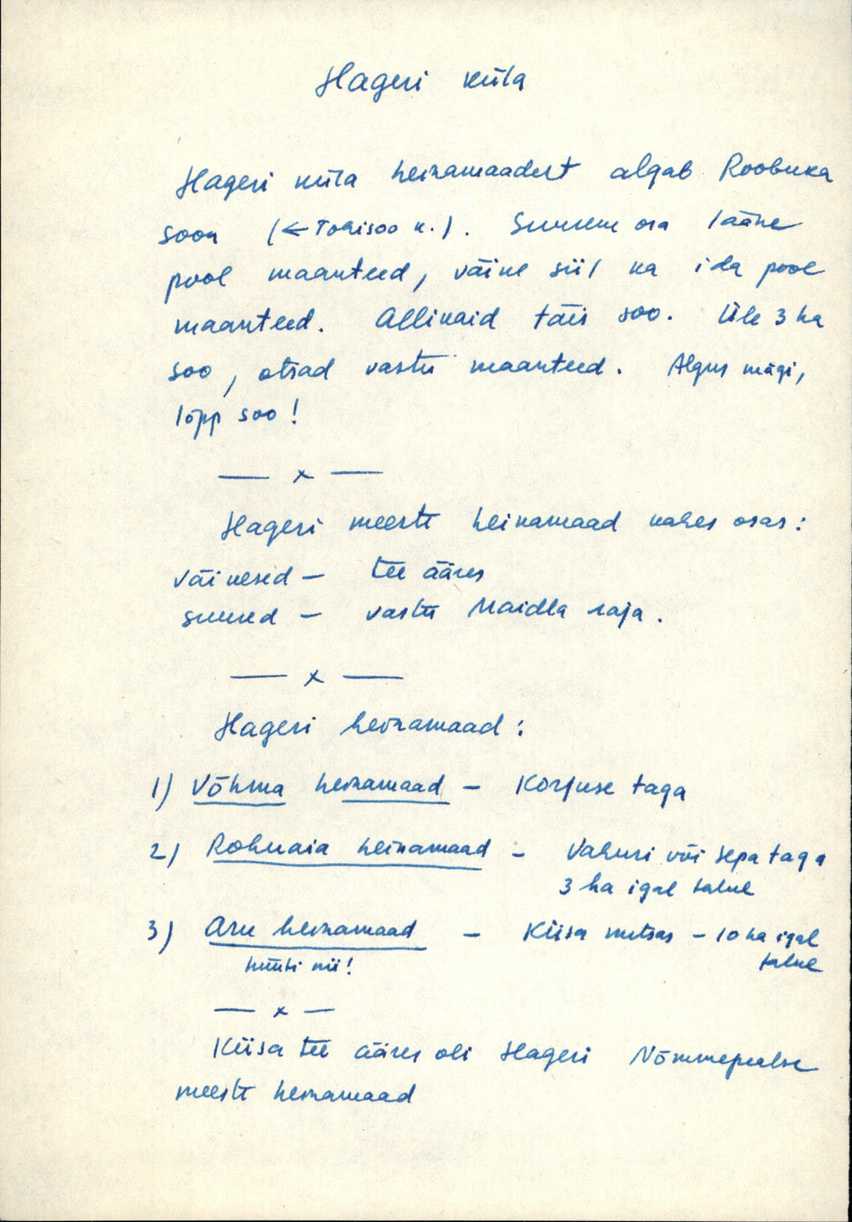 Hageri küla
Hageri küla heinamaadest algab Roobuka
soon (← Tohisoo k.). Suurem osa lääne
pool maanteed, väine siil ka ida pool
maanteed. Allikaid täis soo. Üle 3 ha
soo, otsad vastu maanteed. Algus mägi,
lõpp soo!
— x —
Hageri meeste heinamaad kahes osas:
väikesed — tee ääres
suured — vastu Maidla raja.
— x —
Hageri heinamaad:
1) Võhma heinamaad — Korjuse taga
2) Rohuaia heinamaad — Vahuri või Sepa taga
3 ha igal talul
3) Aru heinamaad — Kiisa metsas — 10 ha igal
talul
hüüti nii!
— x —
Kiisa tee ääres oli Hageri Nõmmepealse
meeste heinamaad